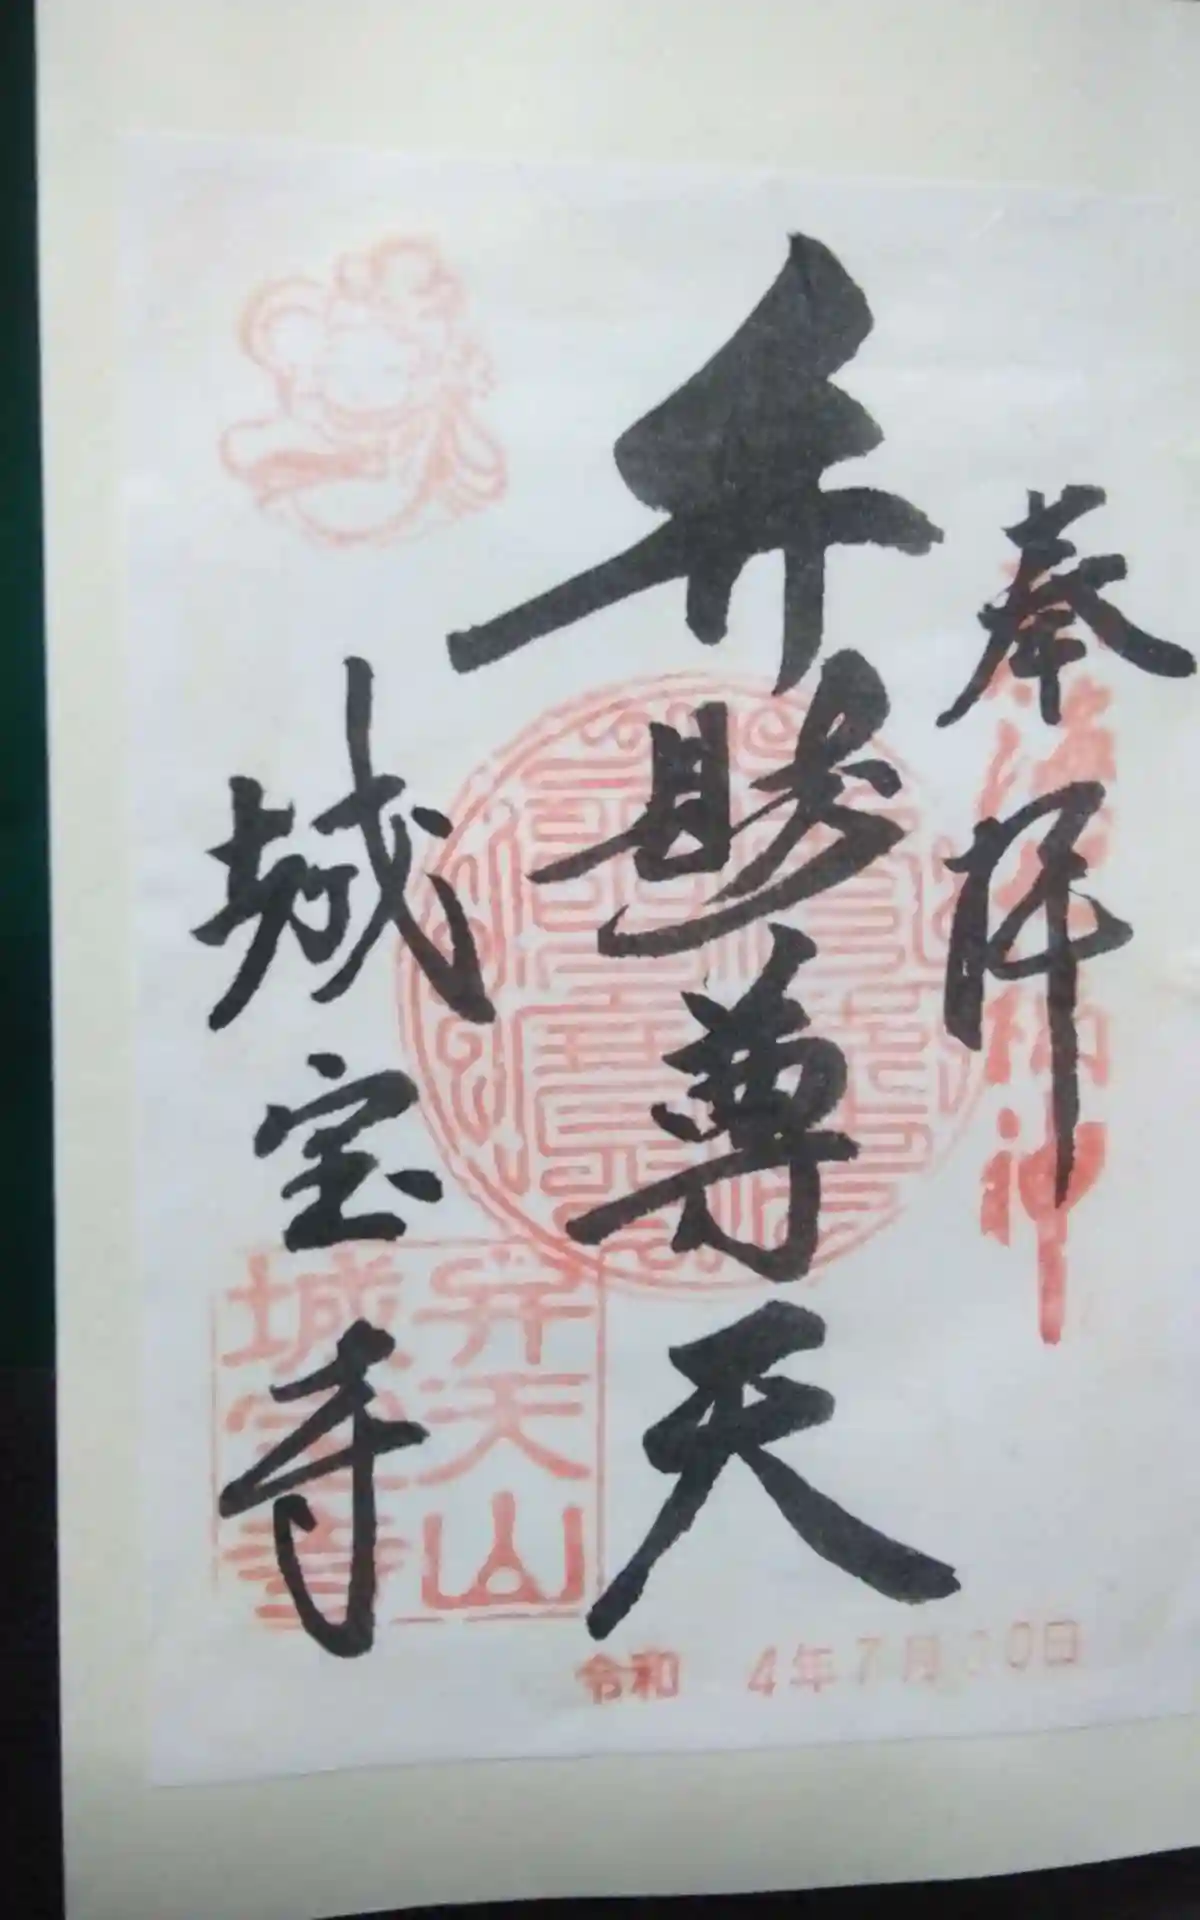 奉拝
弁財尊天
城宝寺
弁天山
城宝寺
令和 4年7月30日